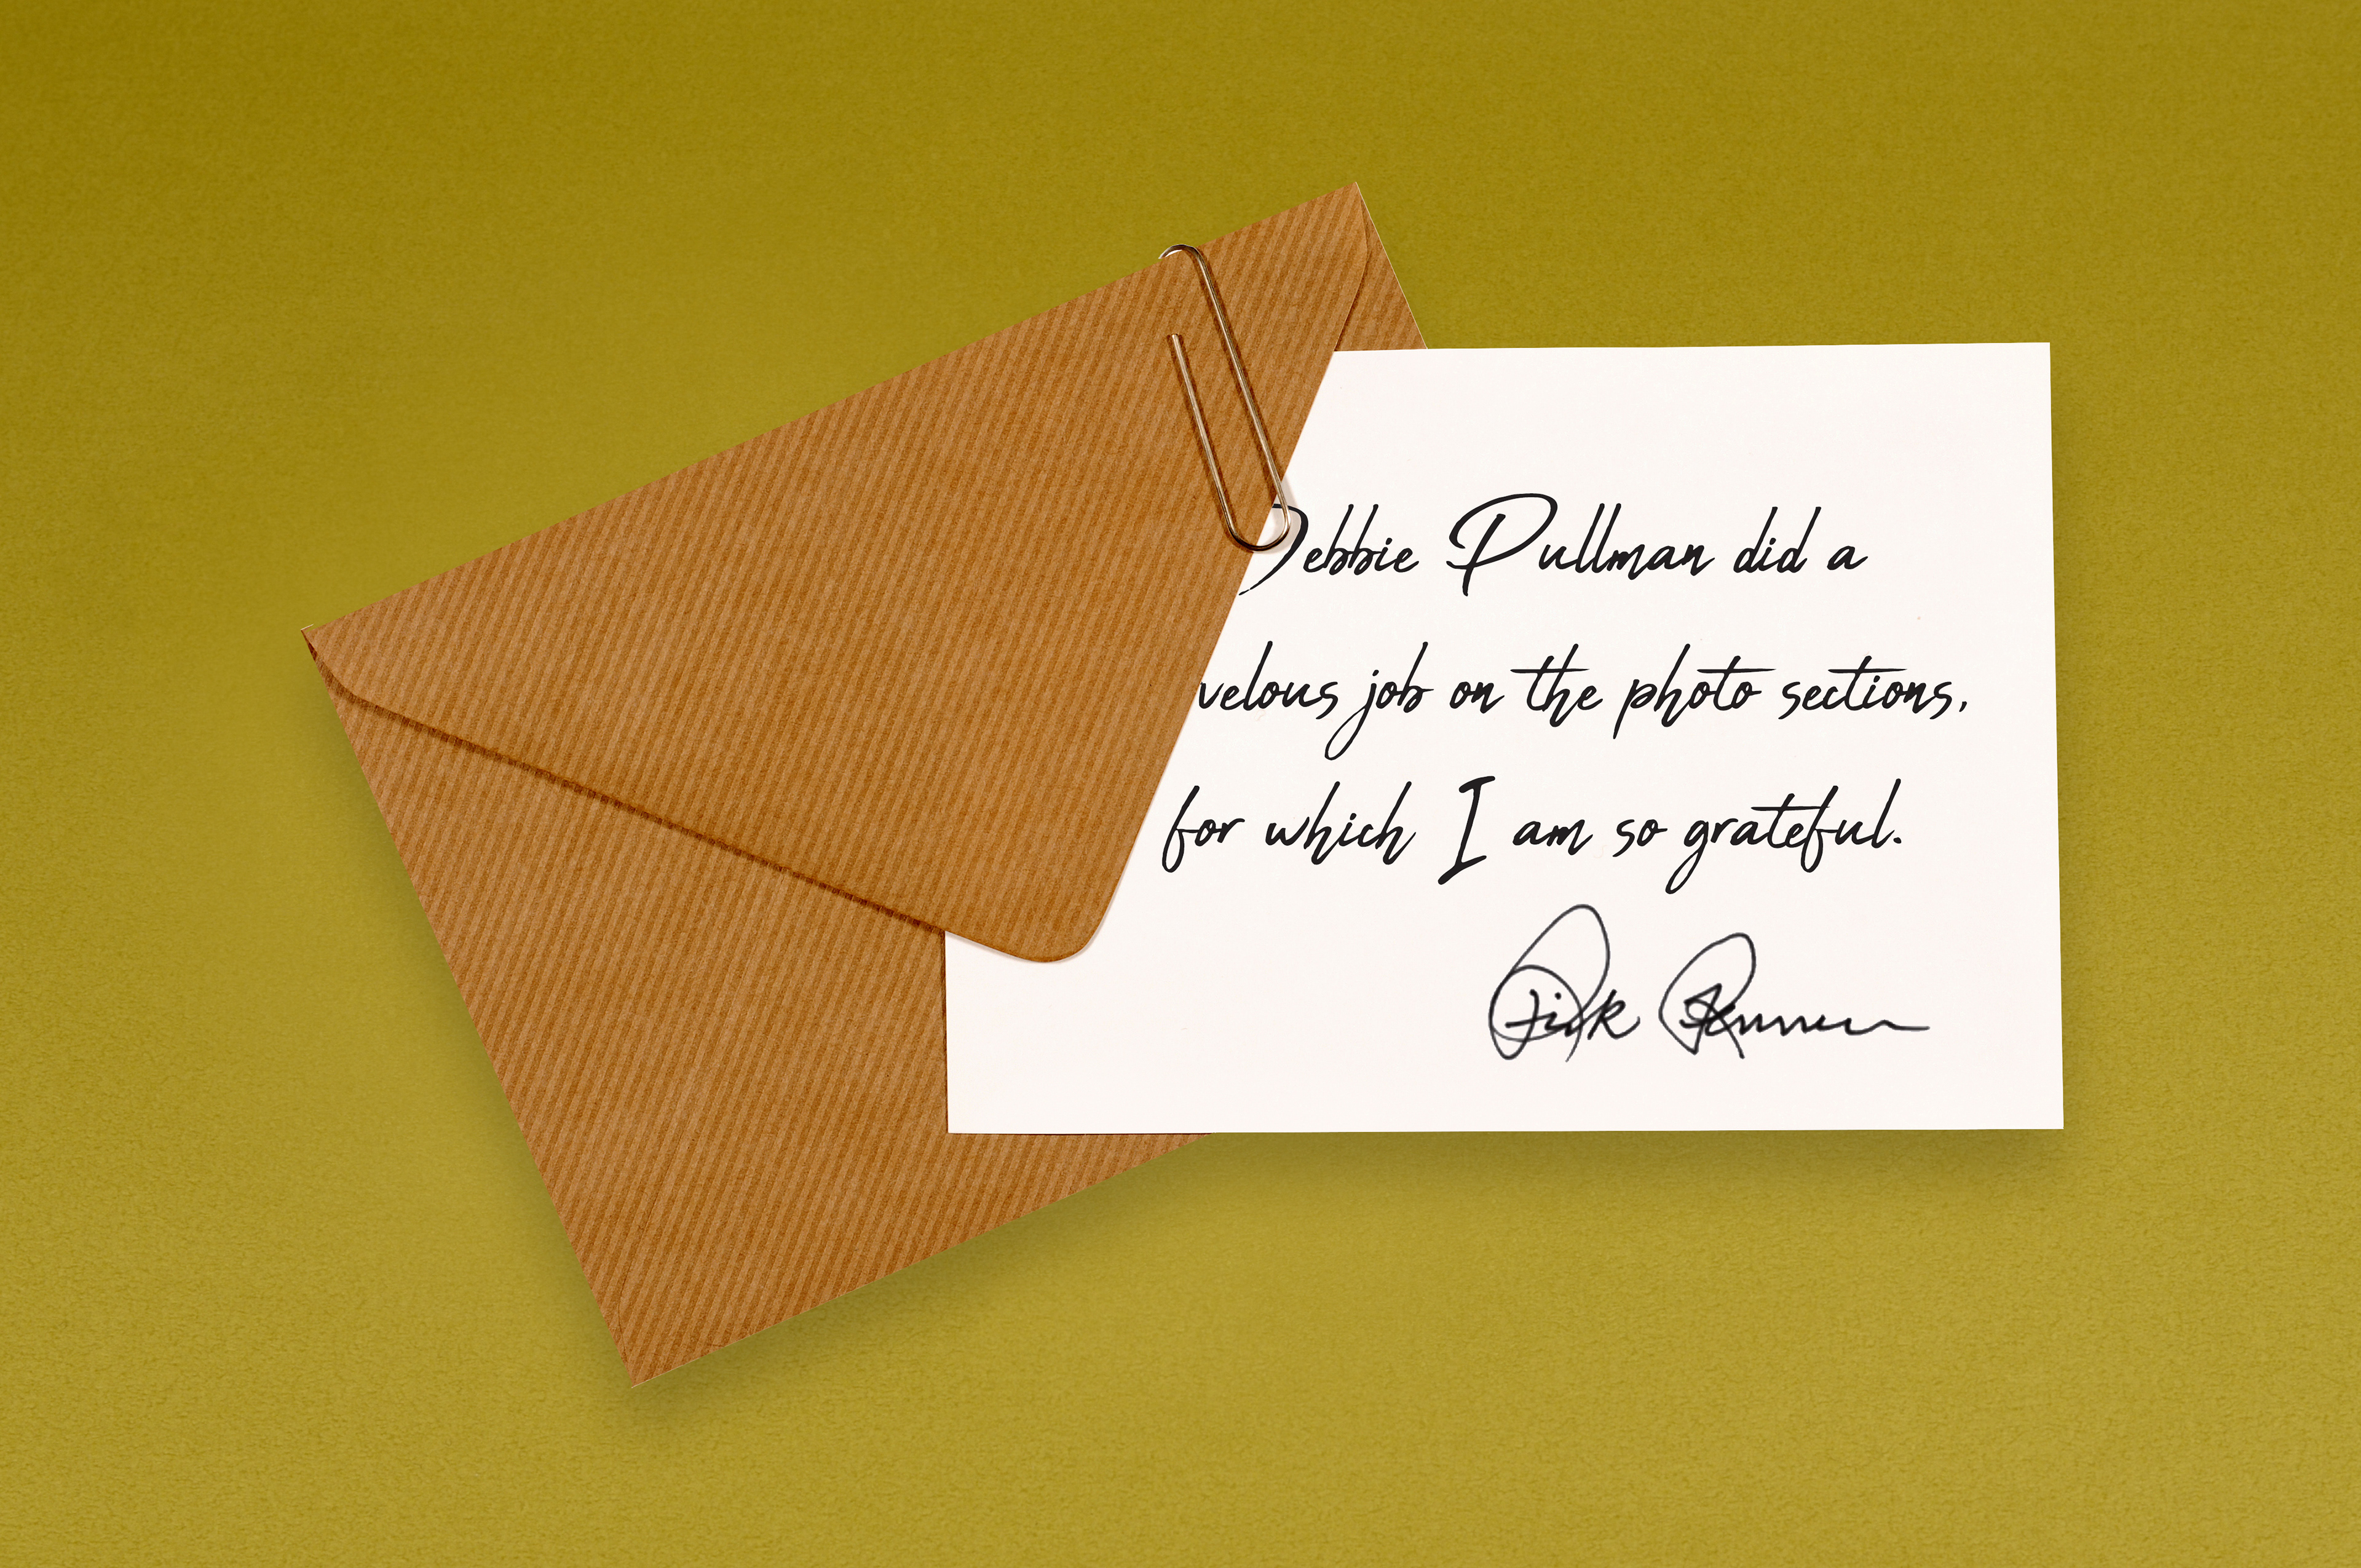 Debbie Pullman did a
velous job on the photo sections,
for which I am so grateful.